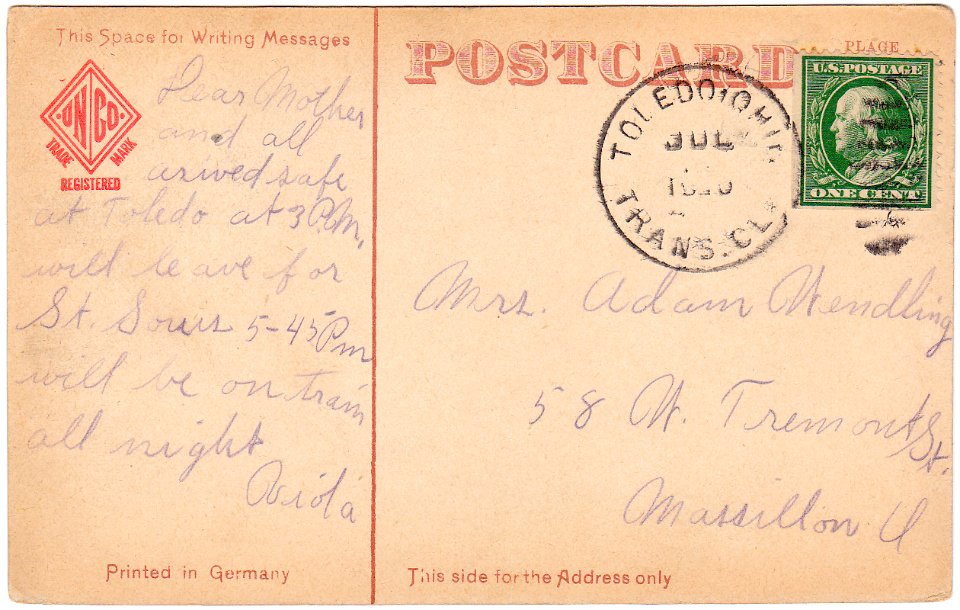 This Space for Writing Messages
UNCO.
TRADE MARK
REGISTERED
Dear Mother
and all
arived safe
at Toledo at 3 P.M.
will leave for
St. Louis 5-45 Pm
will be on train
all night
Viola
Printed in Germany
POSTCARD
PLACE
U.S. POSTAGE
ONE CENT
TOLEDO, OHIO
JUL
TRANS. CL
Mrs. Adam Wendling
58 W. Tremont St.
Massillon O
This side for the Address only